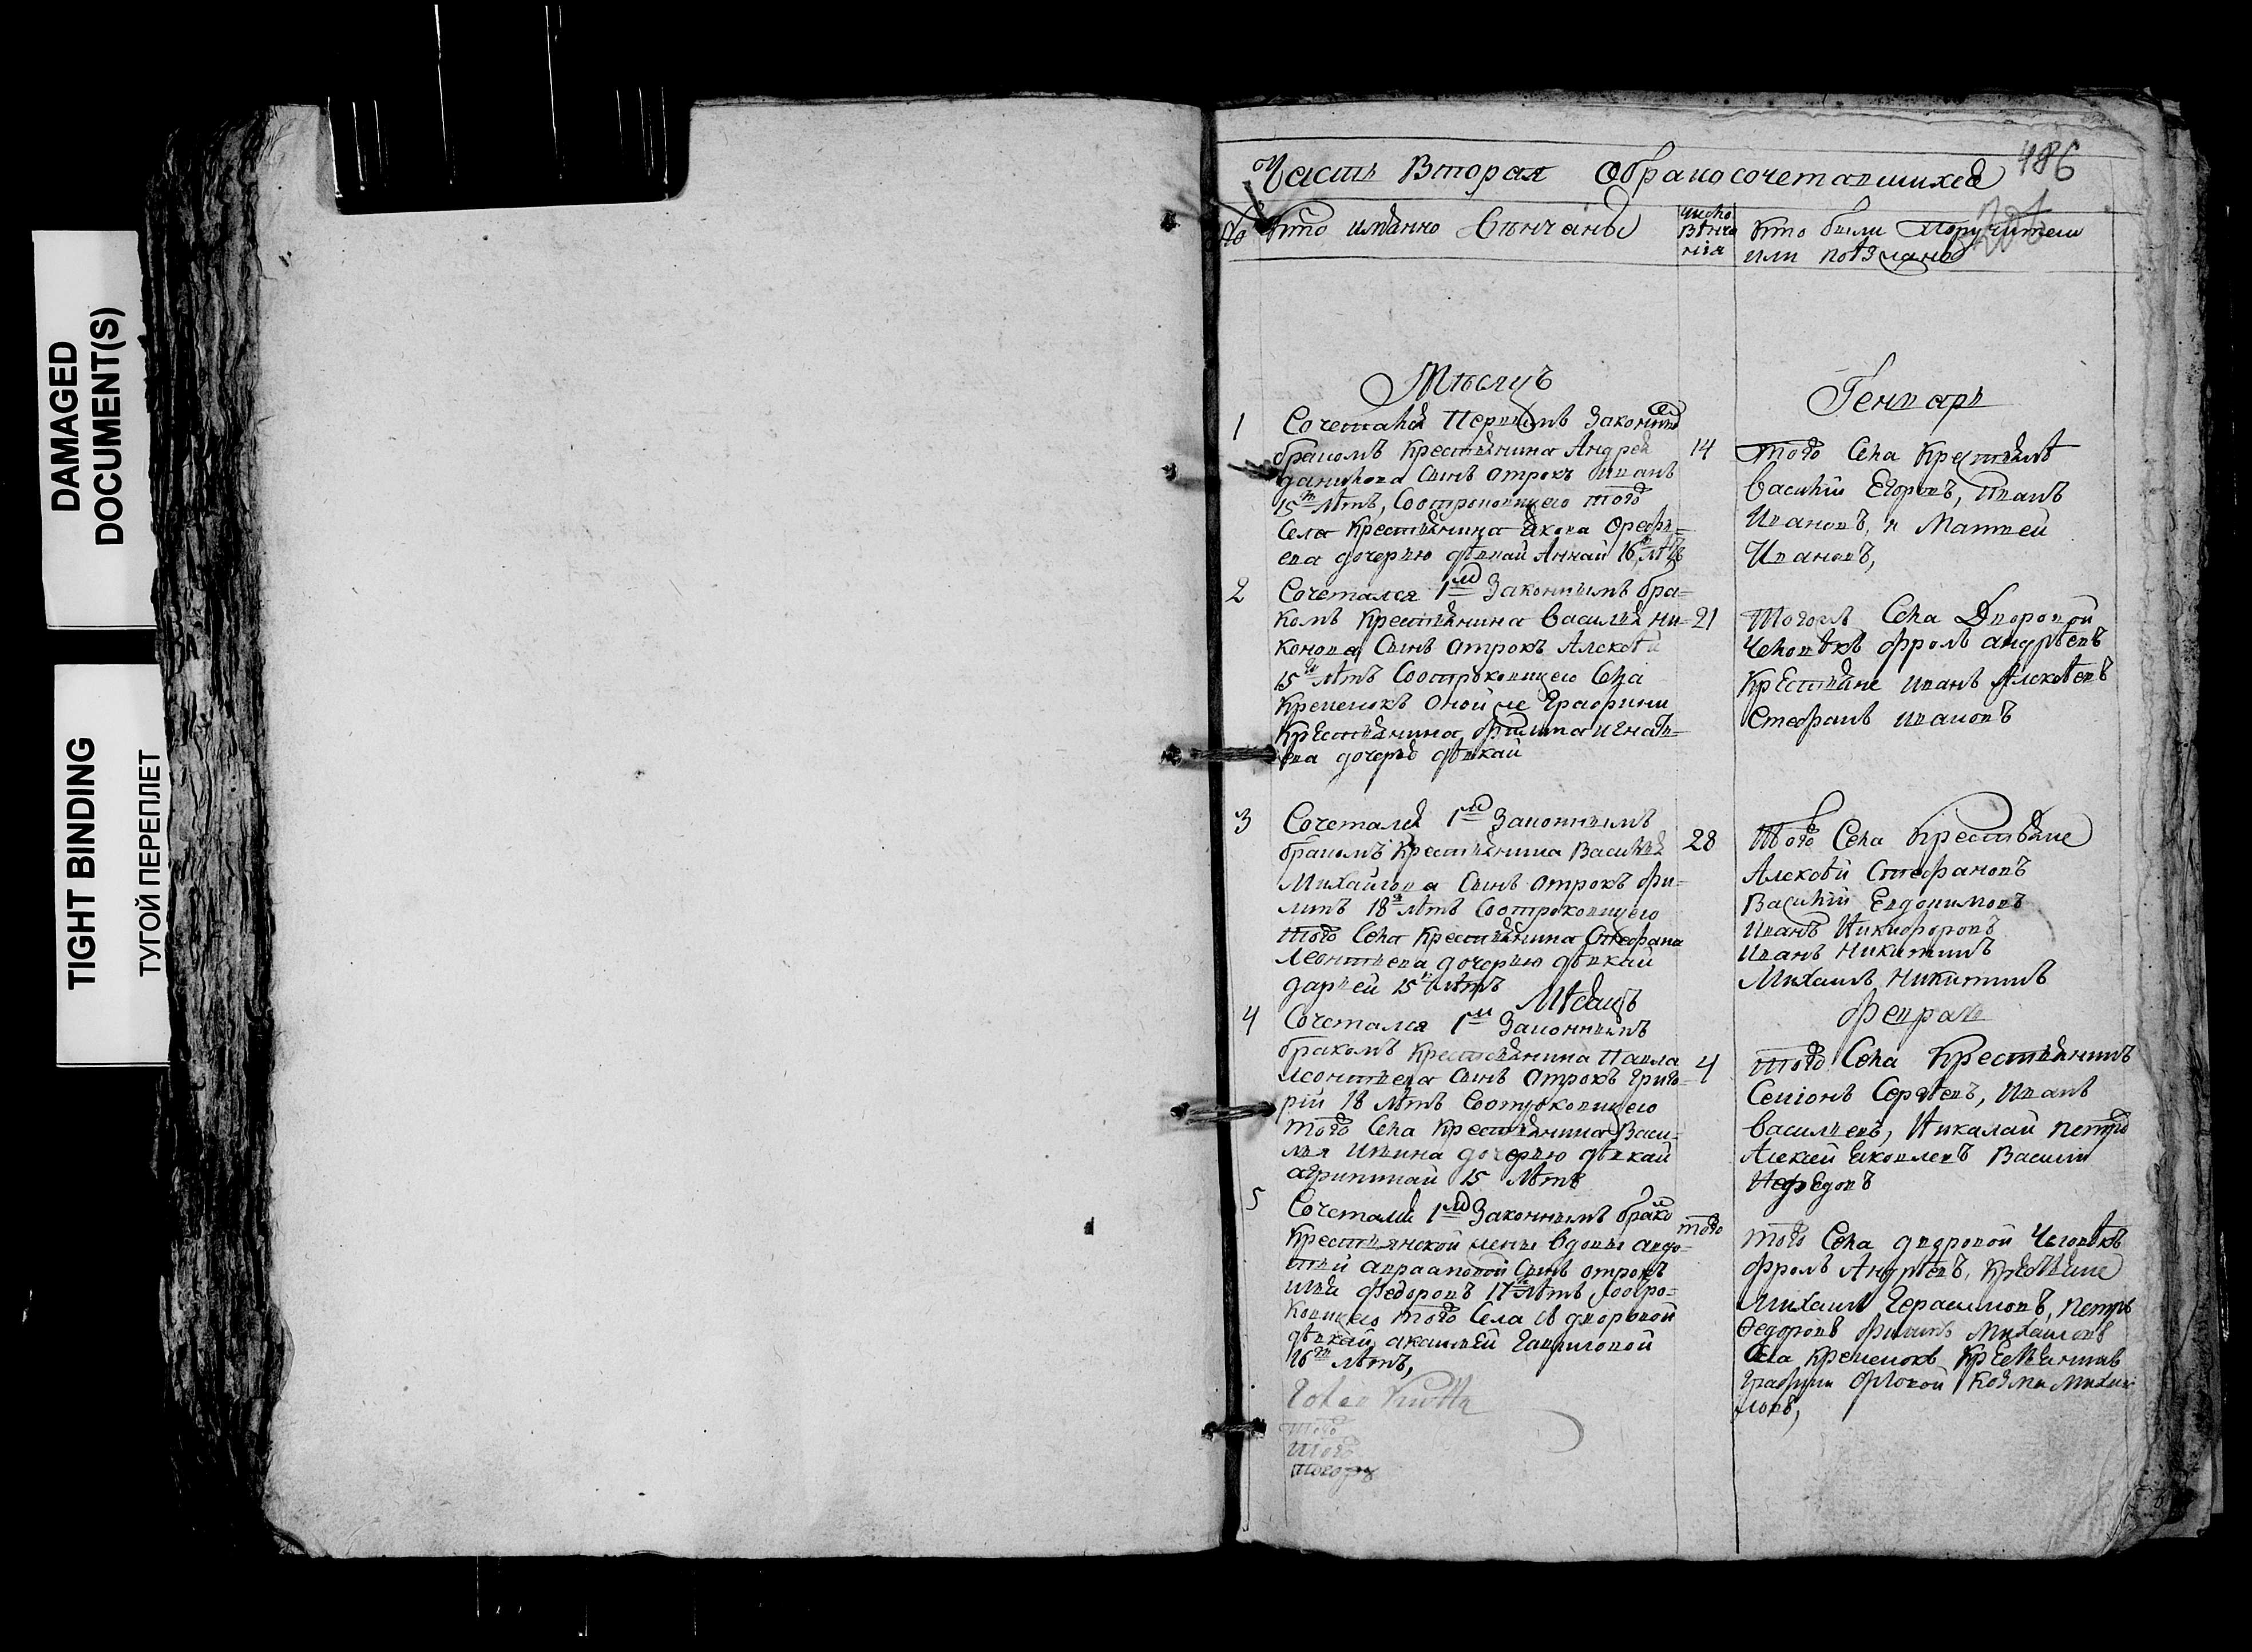 DAMAGED
DOCUMENT(S)
TIGHT BINDING
ТУГОЙ ПЕРЕПЛЕТ
486
Часть Вторая Обракосочетавшихся
№ Кто имянно Вѣнчаны
число
Вѣнча
нія
Кто были Поручители
или поѣзжано
Мѣсяцъ
Генварь
1 Сочетался Первымъ Законнымъ
бракомъ Крестьянина Андрея
данилова Сынъ отрокъ Иванъ
15 лѣтъ, Соотроковицею того
Села Крестьянина Якова Орефь=
ева дочерью дѣвкай Аннай 16 лѣтъ
14 того Села Крестьянѣ
Василій Егоровъ, Иванъ
Ивановъ, и Матвей
Ивановъ,
2 Сочетался 1м Законнымъ бра=
комъ Крестьянина Василья Ни=
конова Сынъ отрокъ Алексѣй
15 лѣтъ Соотроковицею Села
Кременокъ Оной же Графини
Крестьянина Филипа игнать=
ева дочерью дѣвкай
21 Тогожъ Села Дворовой
Человѣкъ Фролъ андрѣевъ
Крестьяне иванъ Алексѣевъ
Стефанъ ивановъ
3 Сочетался 1м Законнымъ
бракомъ Крестьянина Василья
Михайлова Сынъ отрокъ Фи=
липъ 18 лѣтъ Соотроковицею
того Села Крестьянина Стефана
Леонтьева дочерью дѣвкай
дарьей 15 лѣтъ
28 Того Села Крестьяне
Алексѣй Стефановъ
Василій Евдокимовъ
Иванъ Никифоровъ
Иванъ Никитинъ
Михаилъ Никитинъ
Мѣсяцъ
Февраль
4 Сочетался 1м Законнымъ
бракомъ Крестьянина Павла
Леонтьева Сынъ Отрокъ Григо=
рій 18 лѣтъ Соотроковицею
того Села Крестьянина Васи=
лья Ильина дочерью дѣвкай
агрипинай 15 лѣтъ
4 того Села Крестьянинъ
Семіонъ Сергѣевъ, Иванъ
Васильевъ, Николай петро
Алексей Яковлевъ Василій
Нефедовъ
5 Сочетался 1м Законнымъ брако
Крестьянской жены вдовы авдо=
тьи авраамовой Сынъ отрокъ
илья Федоровъ 17 лѣтъ Соотро=
ковицею того Села дворовой
дѣвкай акалиней Гавриловой
16 лѣтъ,
того
того Села дворовой Человѣкъ
Фролъ Андрѣевъ, Крестьяне
Михаилъ Герасимовъ, петръ
Федоровъ Филипъ Михаиловъ
Села Кременокъ Крестьянинъ
Графини Орловой Козма Михаи
ловъ,
того
того